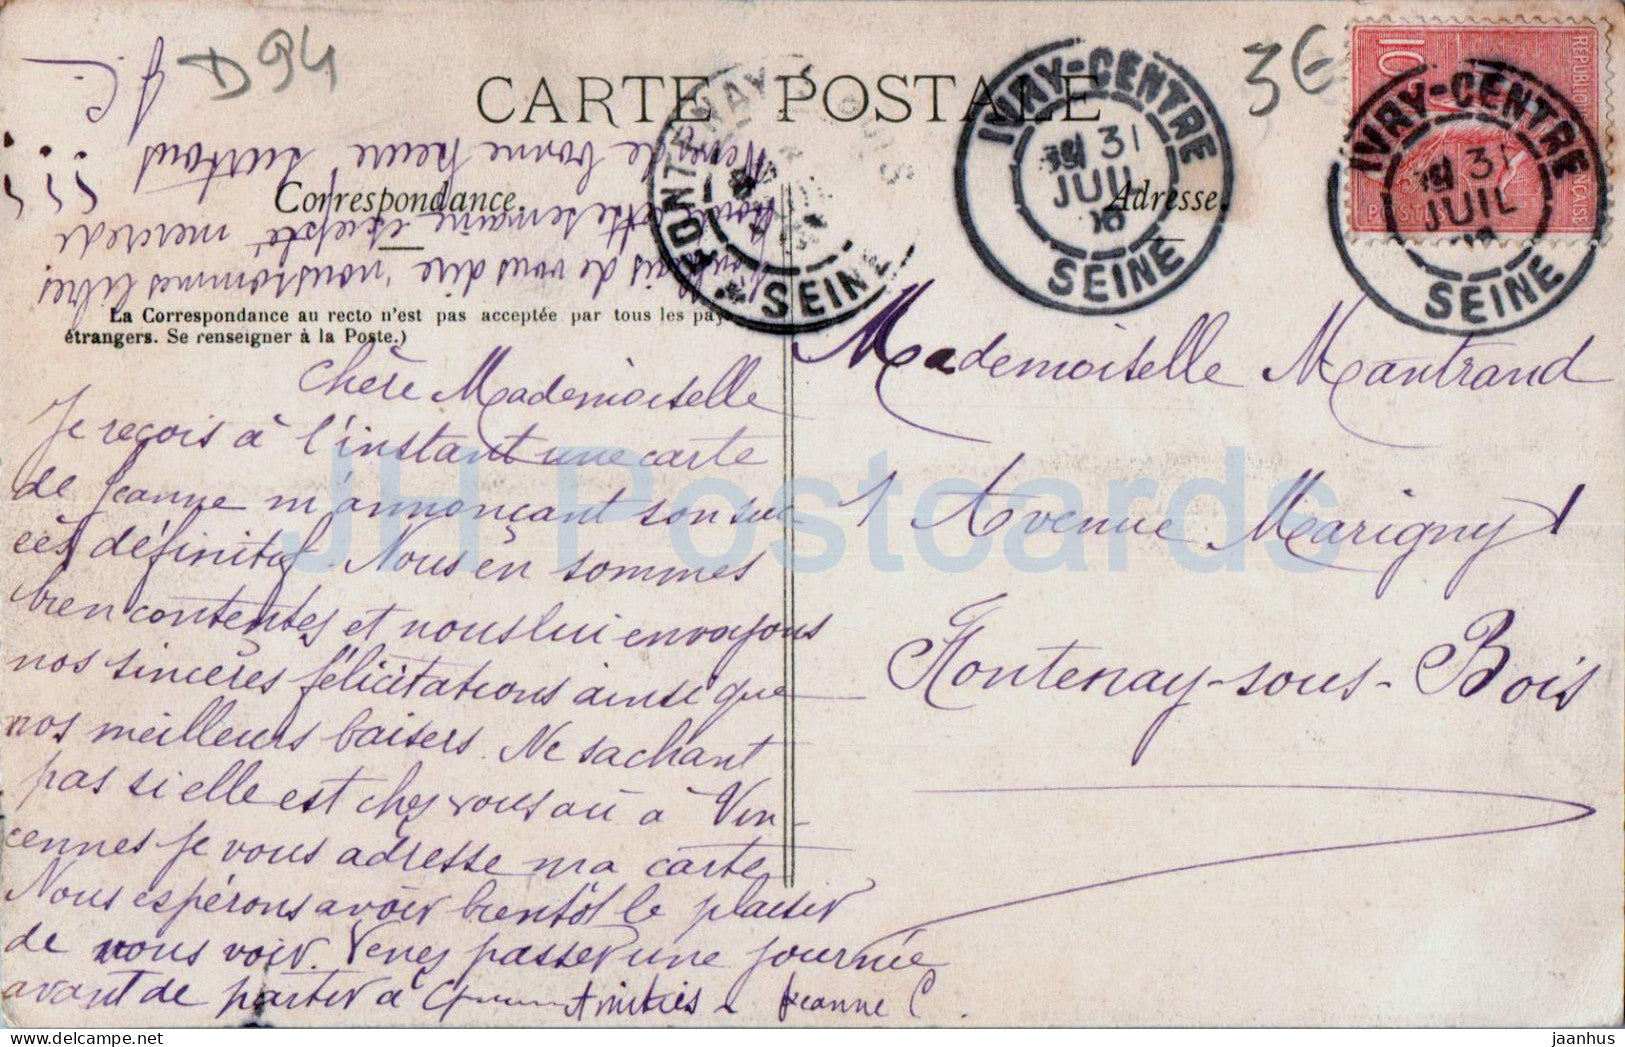 D94
3€
CARTE POSTALE
Correspondance.
Adresse.
La Correspondance au recto n'est pas acceptée par tous les pay
étrangers. Se renseigner à la Poste.)
IVRY-CENTRE
31
JUIL
SEINE
IVRY-CENTRE
31
JUIL
SEINE
SEINE
10
RÉPUBLIQUE FRANÇAISE
Chère Mademoiselle
Je reçois à l'instant une carte
de Jeanne m'annonçant son suc
cès définitif. Nous en sommes
bien contentes et nous lui envoyons
nos sincères félicitations ainsi que
nos meilleurs baisers. Ne sachant
pas si elle est chez vous ou à Vin-
cennes je vous adresse ma carte
Nous espérons avoir bientôt le plaisir
de vous voir. Venez passer une journée
avant de partir à Amitiés Jeanne C.
de vous dire nous sommes libres
toute cette semaine excepté mercredi
Venez de bonne heure surtout !!!
J C.
Mademoiselle Mantrand
1 Avenue Marigny 1
Fontenay-sous-Bois
JH Postcards
www.delcampe.net
jaanhus